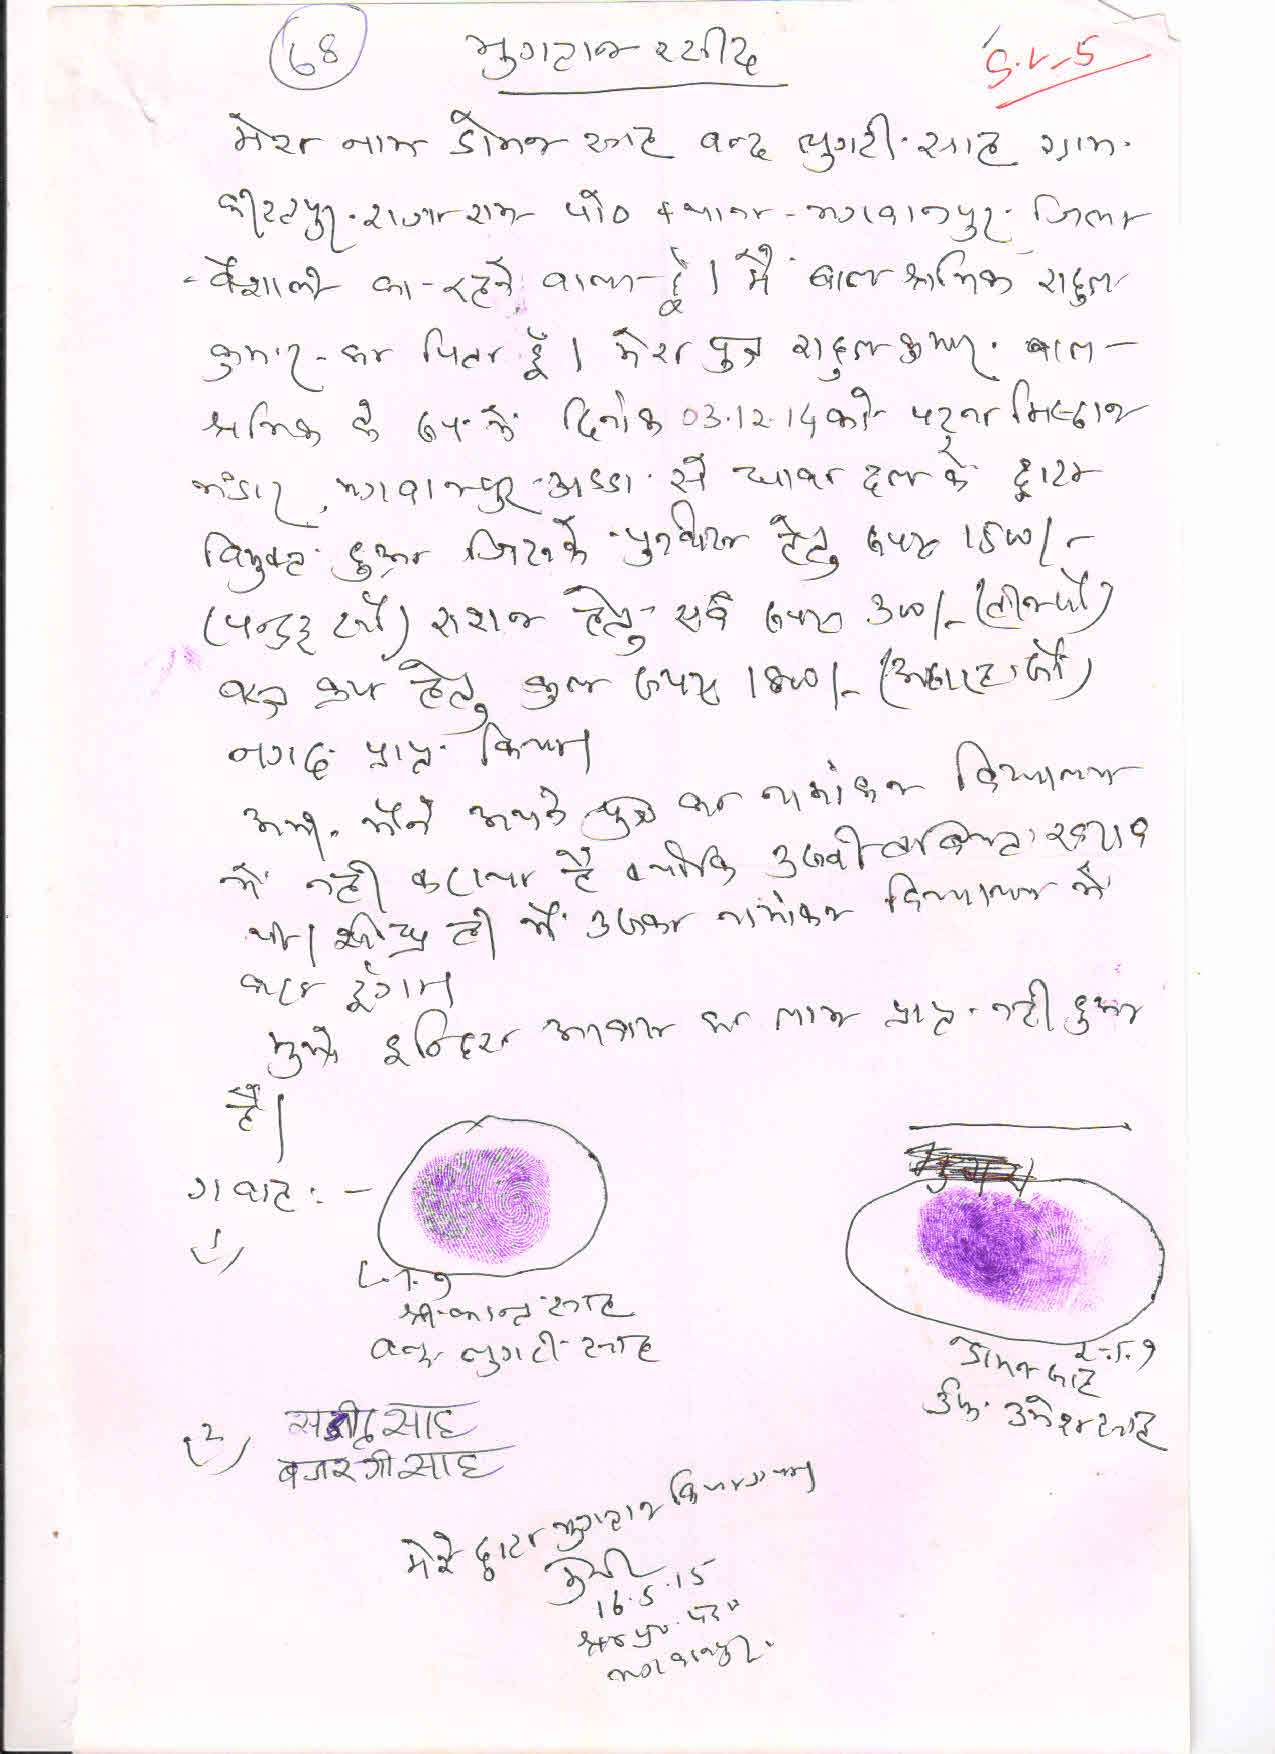 68 भुगतान रसीद
मेरा नाम डोमन साह वल्द भुगटी साह ग्राम
कीरतपुर राजाराम पो० + थाना - भगवानपुर जिला
वैशाली का रहने वाला हूँ। मैं बाल श्रमिक राहुल
कुमार का पिता हूँ। मेरा पुत्र राहुल कुमार बाल
श्रमिक के रूप में दिनांक 03.12.14 को पटना मिष्ठान
भंडार, भगवानपुर अड्डा से धावा दल के द्वारा
विमुक्त हुआ जिसके पुनर्वास हेतु रूपए 1500/-
(पन्द्रह सौ) राशन हेतु एवं रूपए 300/- (तीन सौ)
वस्त्र क्रय हेतु कुल रूपए 1800/- (अठारह सौ)
नगद प्राप्त किया।
अभी मैंने अपने पुत्र का नामांकन विद्यालय
में नहीं कराया है क्योंकि उसकी
था। शीघ्र ही मैं उसका नामांकन विद्यालय में
करा दूंगा।
मुझे इन्दिरा आवास का लाभ प्राप्त नहीं हुआ
है।
गवाह :-
(1)
L.T.I
श्रीकान्त साह
वल्द भुगटी साह
डोमन साह
उर्फ उमेश साह
(2) साह
बजरंगी साह
मेरे द्वारा भुगतान किया गया।
16.5.15
श्रम प्र० पदा०
भगवानपुर